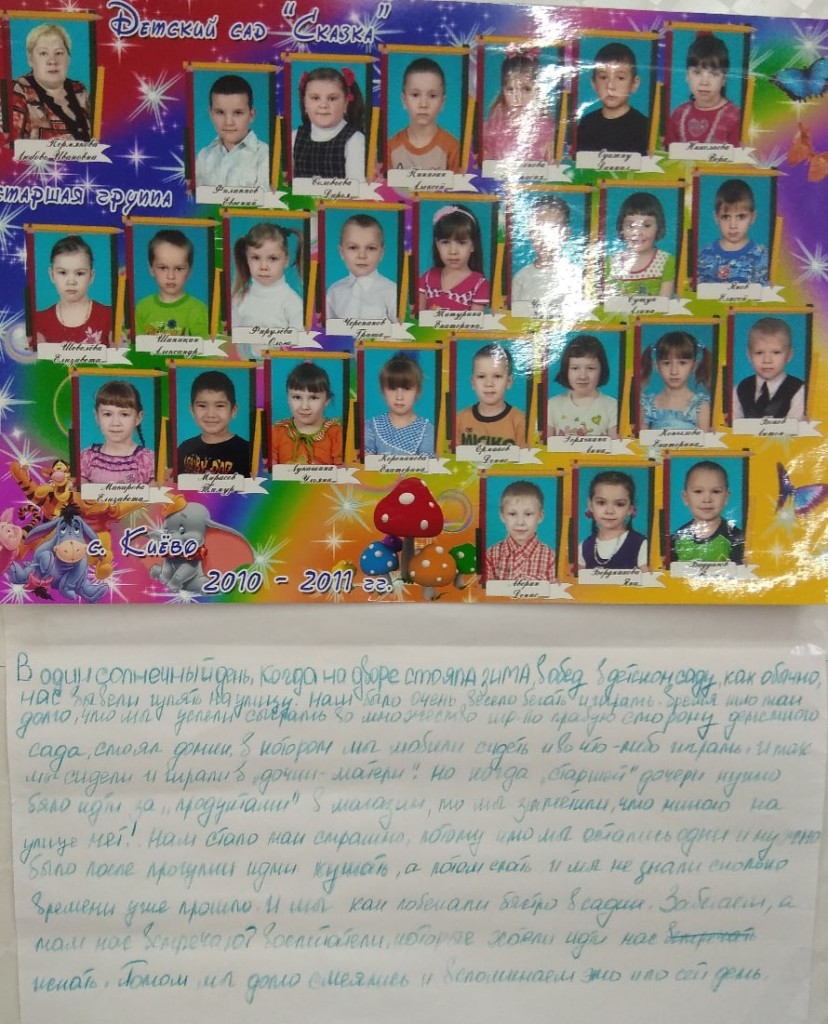 Детский сад "Сказка"
Любовь Ивановна
Филиппов
Евгений
Соловьева
Дарья
Алексей
Николаева
Вера
старшая группа
Шевелёва
Елизавета
Шаницин
Александр
Фирулёва
Черепанов
Гриша
Митурина
Екатерина
Янов
Елисей
Макарова
Елизавета
Мирасов
Тимур
Лучинина
Ульяна
Коропанова
Екатерина
Ермаков
Денис
Горячкина
Копылова
Екатерина
Попов
Антон
Аверин
Денис
Бердникова
Яна
с. Киёво
2010 - 2011 гг.
В один солнечный день, когда на дворе стояла зима, в обед в детском саду, как обычно,
нас вывели гулять на улицу. Нам было очень весело бегать и играть. Время шло так
долго, что мы успели сыграть во множество игр. По правую сторону детского
сада, стоял домик, в котором мы любили сидеть и во что-либо играть. И так
мы сидели и играли в „дочки-матери". Но когда „старшей" дочери нужно
было идти за „продуктами" в магазин, то мы заметили, что никого на
улице нет! Нам стало так страшно, потому что мы остались одни и нужно
было после прогулки идти кушать, а потом спать и мы не знали сколько
времени уже прошло. И мы как побежали быстро в садик. Забегаем, а
там нас встречают воспитатели, которые хотели идти нас встречать
искать. Потом мы долго смеялись и вспоминаем это по сей день.